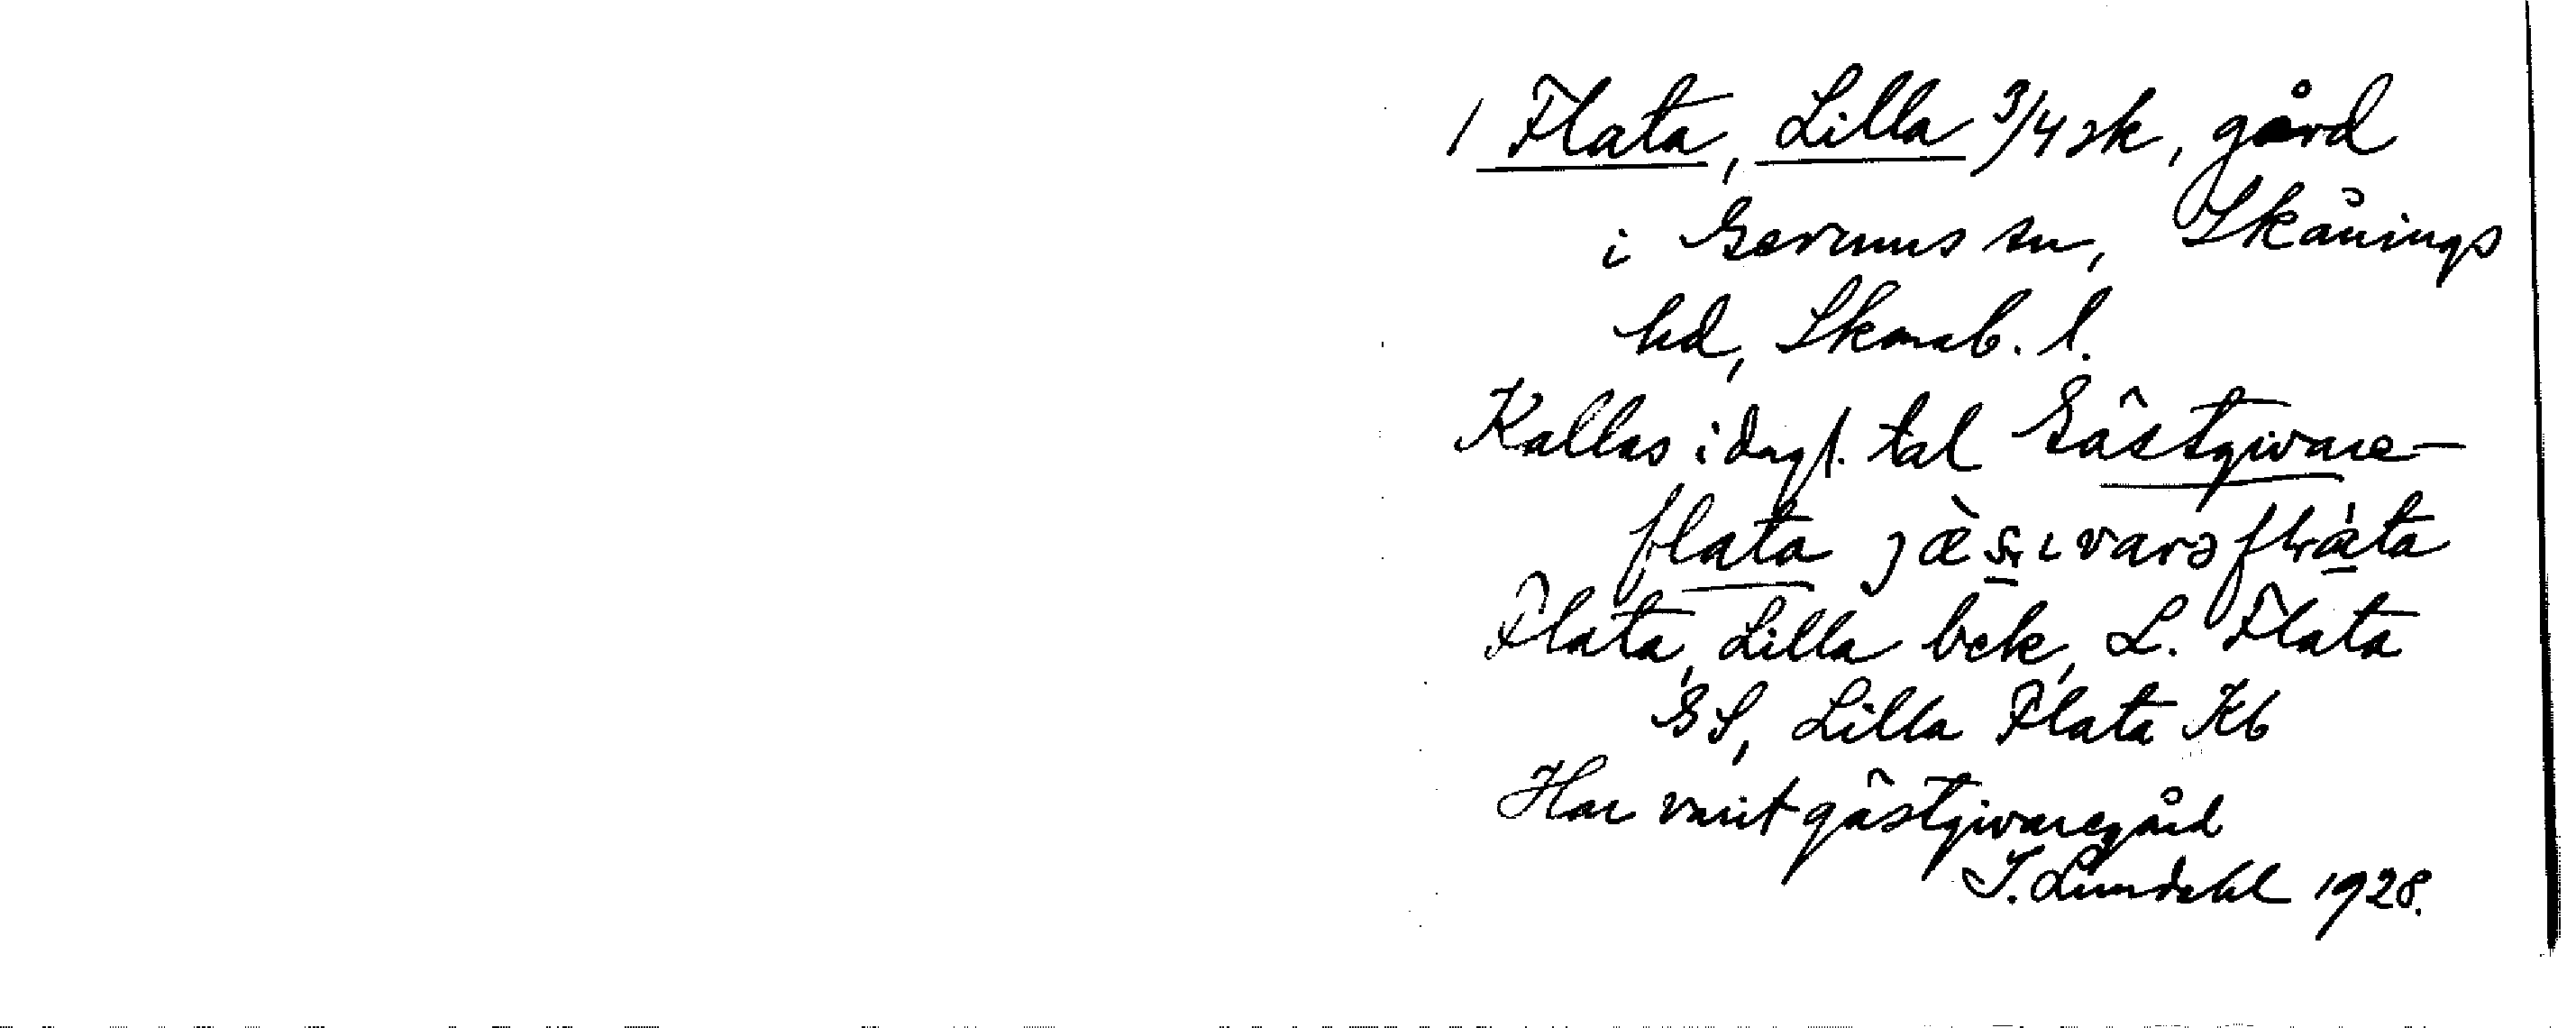 1 Flata, Lilla 3/4 sk, gård
i Gerums sn, Skånings
hd, Skarab. l.
Kallas i dagl. tal Gästgivare-
flata
Flata, Lilla bek, L. Flata
GS, Lilla Flata Kb
Har varit gästgivaregård
I. Lundahl 1928.